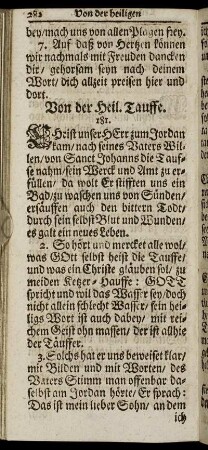 282 Von der heiligen
bey/mach uns von allen Plagen frey.
7. Auf daß von Hertzen können
wir nachmals mit Freuden dancken
dir/ gehorsam seyn nach deinem
Wort/ dich allzeit preisen hier und
dort.
Von der Heil. Tauffe.
181.
CHrist unser HErr zum Jordan
kam/ nach seines Vaters Wil-
len/ von Sanct Johanns die Tauf-
fe nahm/ sein Werck und Amt zu er-
füllen/ da wolt Er stifften uns ein
Bad/ zu waschen uns von Sünden/
ersäuffen auch den bittern Todt/
durch sein selbst Blut und Wunden/
es galt ein neues Leben.
2. So hört und mercket alle wol/
was GOtt selbst heist die Tauffe/
und was ein Christe gläuben sol/ zu
meiden Ketzer-Hauffe: GOTT
spricht und wil das Wasser sey/doch
nicht allein schlecht Wasser/ sein hei-
ligs Wort ist auch dabey/ mit rei-
chem Geist ohn massen/ der ist allhie
der Täuffer.
3. Solchs hat er uns beweiset klar/
mit Bilden und mit Worten/ des
Vaters Stimm man offenbar da-
selbst am Jordan hörte/ Er sprach:
Das ist mein lieber Sohn/ an dem
ich/